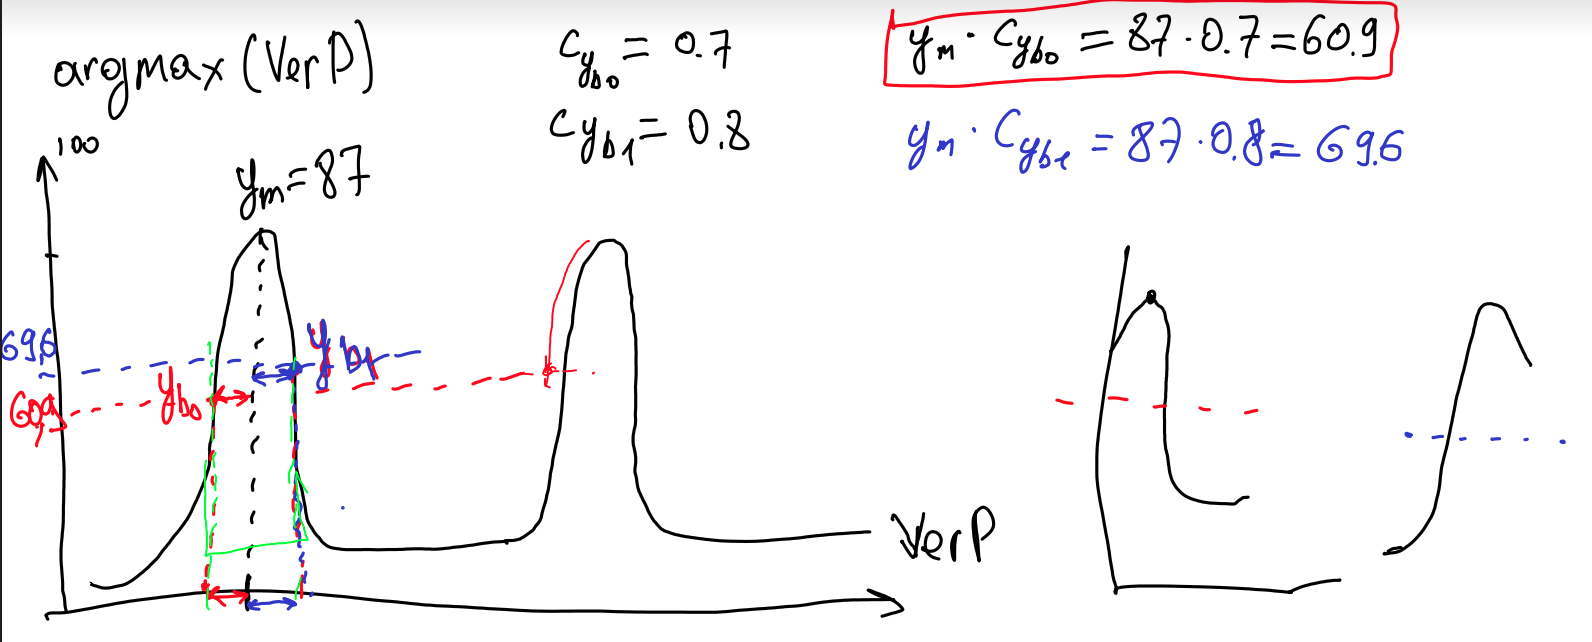 argmax (VerP)
C_{y_{b_0}} = 0.7
C_{y_{b_1}} = 0.8
y_m · C_{y_{b_0}} = 87 · 0.7 = 60.9
y_m · C_{y_{b_1}} = 87 · 0.8 = 69.6
100
y_m = 87
69.6
60.9
y_{b_0}
y_{b_1}
VerP